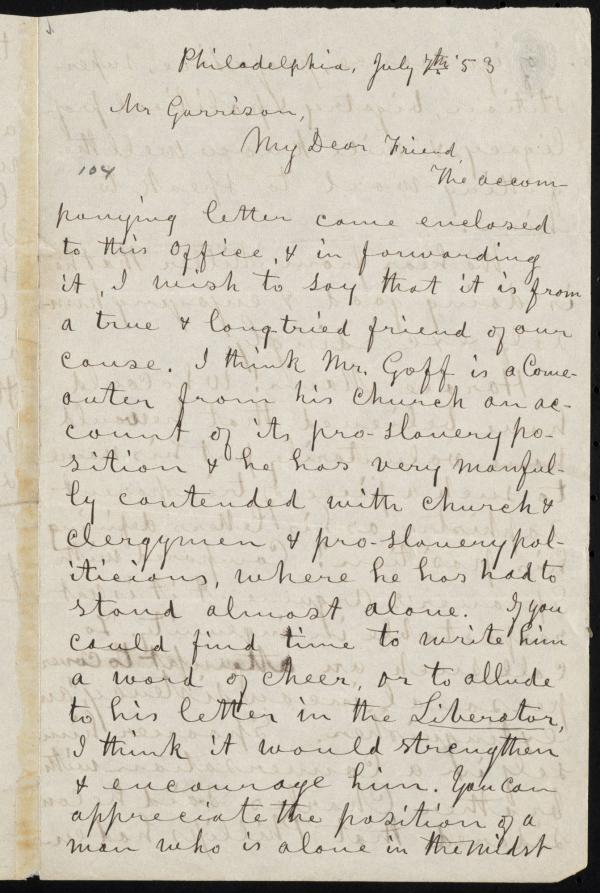 Philadelphia, July 7th '53
Mr Garrison,
My Dear Friend,
104
The accom-
panying letter came enclosed
to this office, & in forwarding
it, I wish to say that it is from
a true & long-tried friend of our
cause. I think Mr. Goff is a Come-
outer from his church on ac-
count of its pro-slavery po-
sition & he has very manful-
ly contended with church &
clergymen & pro-slavery pol-
iticians, where he has had to
stand almost alone. If you
could find time to write him
a word of cheer, or to allude
to his letter in the Liberator,
I think it would strengthen
& encourage him. You can
appreciate the position of a
man who is alone in the midst